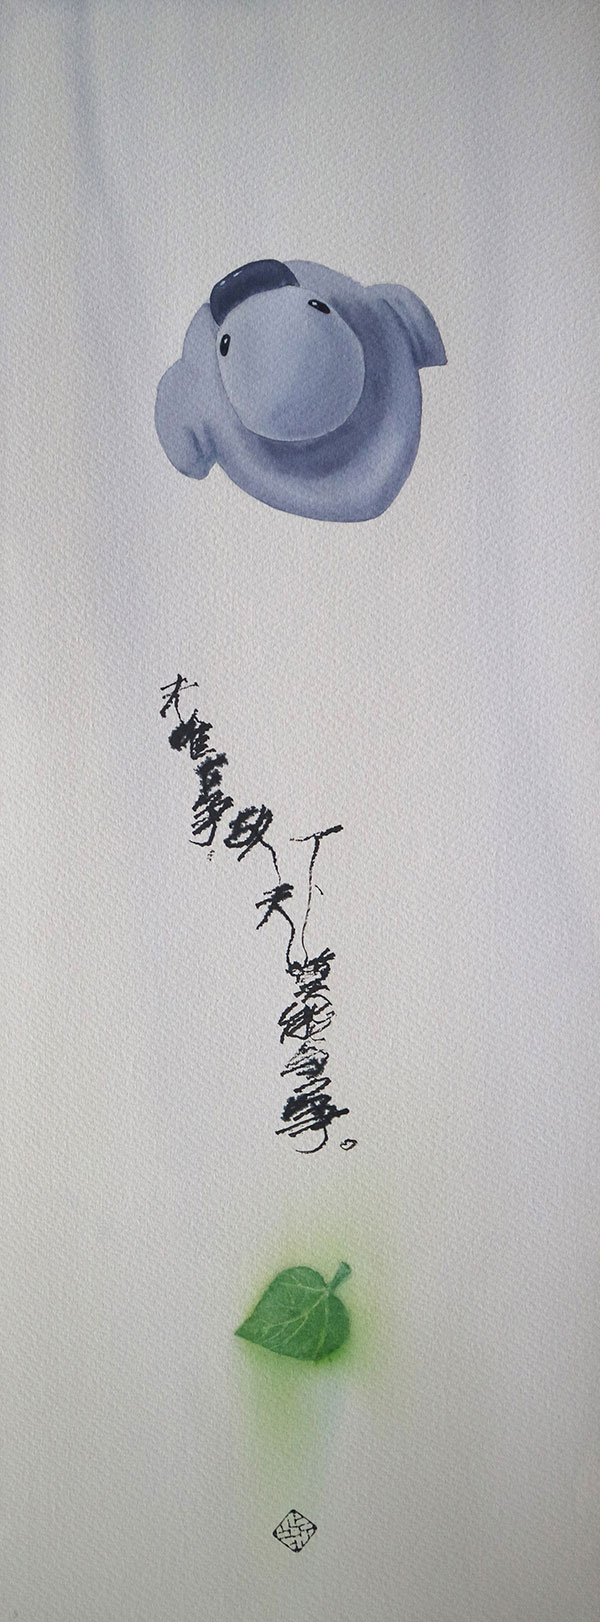 夫唯不争故天下莫能与之争。